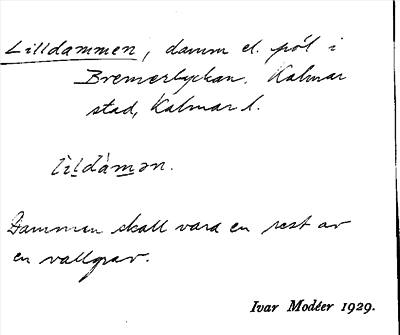 Lilldammen, damm el. pöl i
Bremerlyckan. Kalmar
stad, Kalmar l.
lìldám̲ən.
Dammen skall vara en rest av
en vallgrav.
Ivar Modéer 1929.